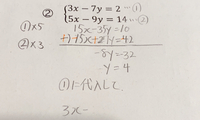 ② {3x − 7y = 2 …①
{5x − 9y = 14 …②
①×5 15x−35y=10
②×3 −) 15x−27y=42
−8y=−32
−y=4
①に代入して、
3x−